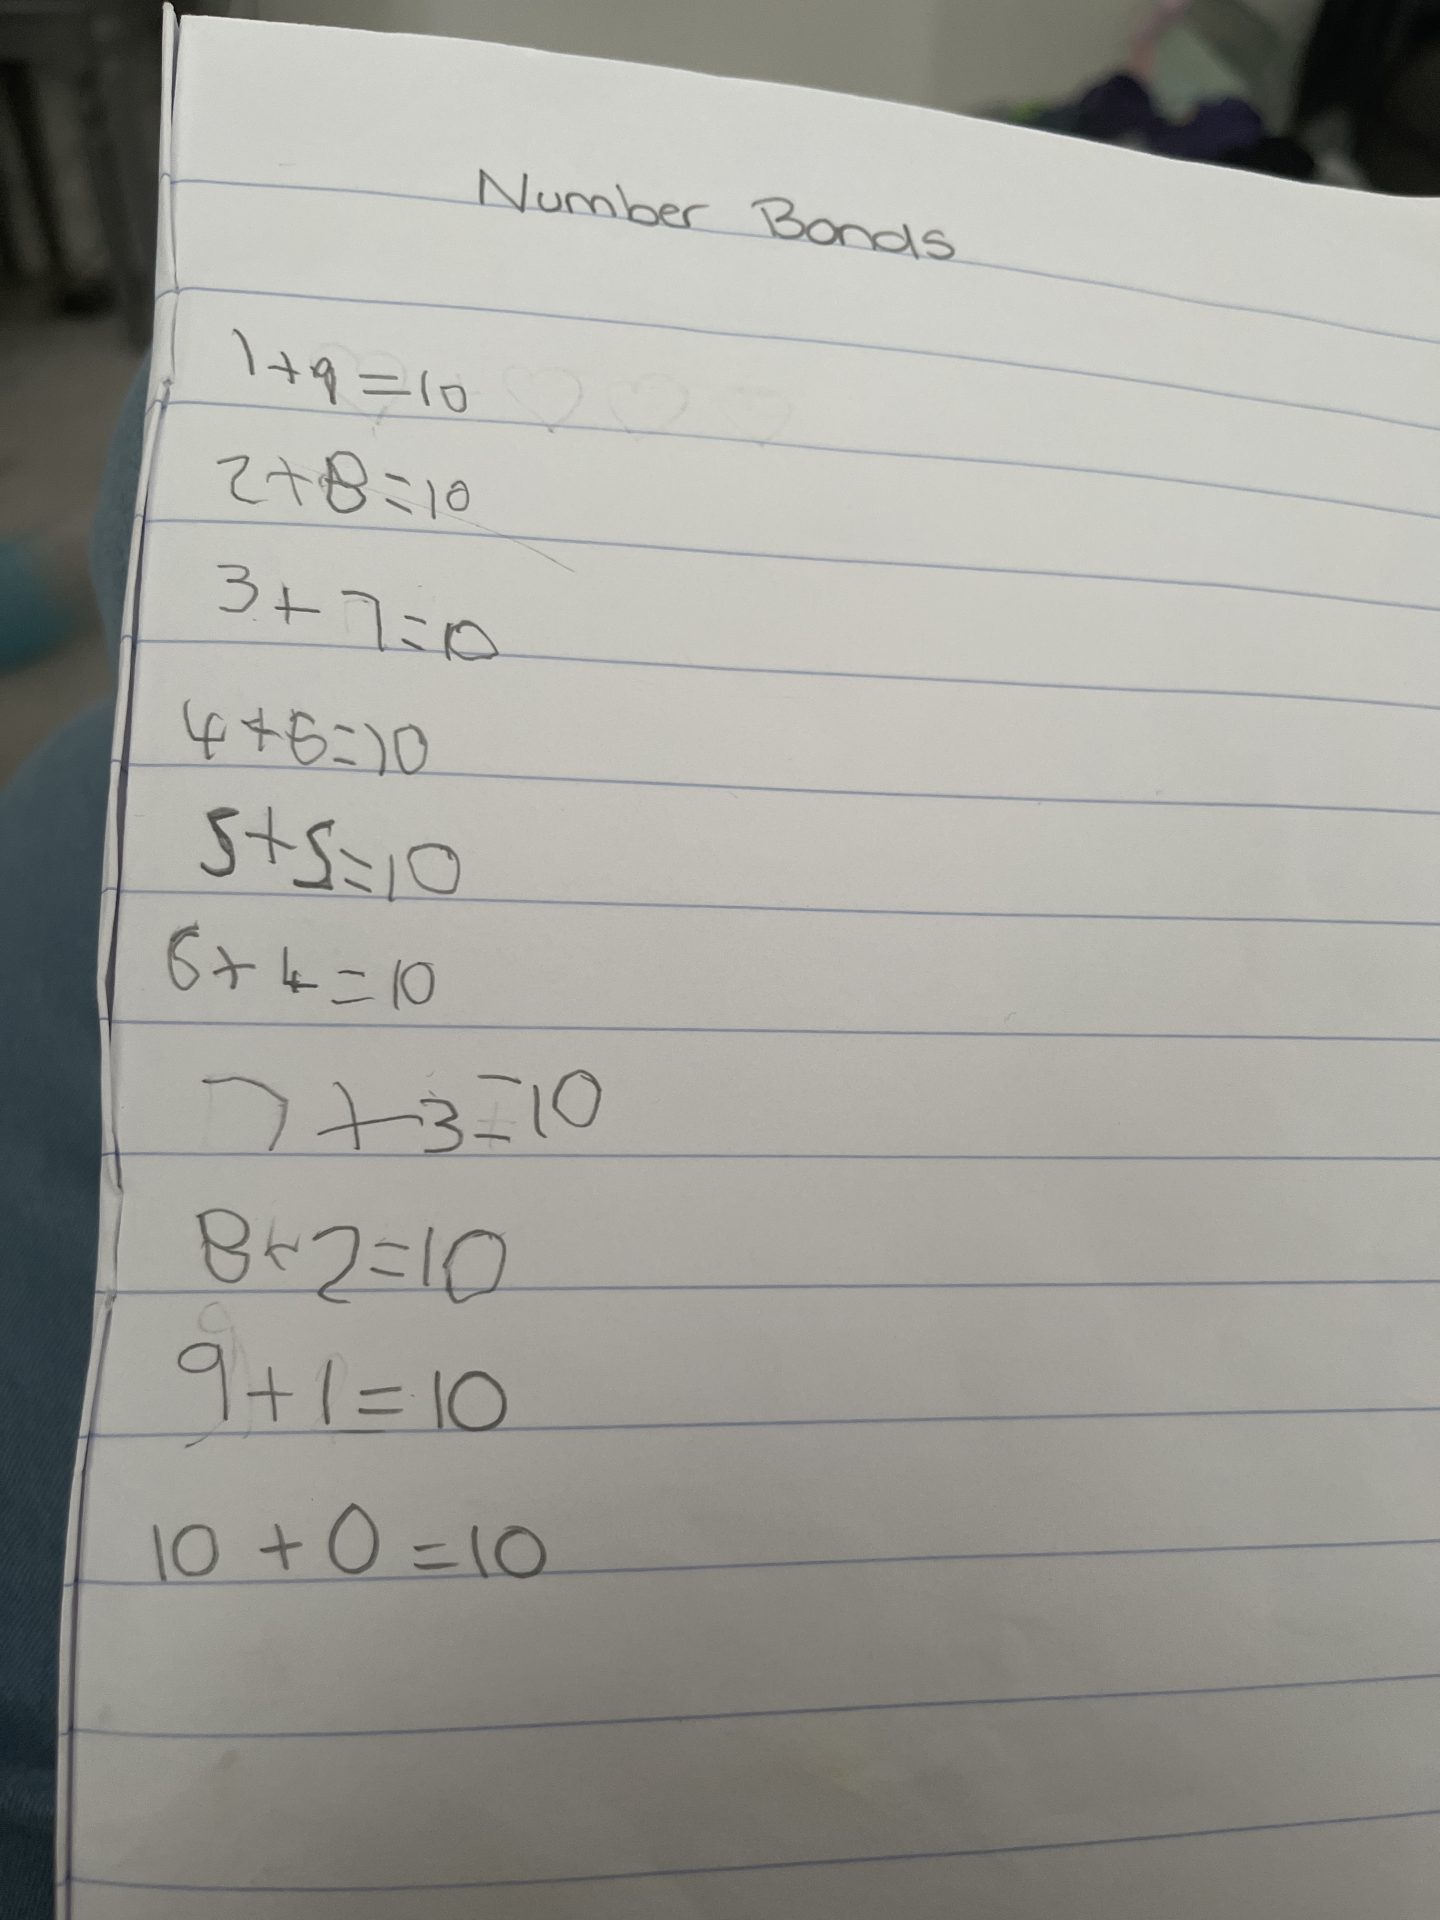 Number Bonds
1+9=10
2+8=10
3+7=10
4+6=10
5+5=10
6+4=10
7+3=10
8+2=10
9+1=10
10+0=10